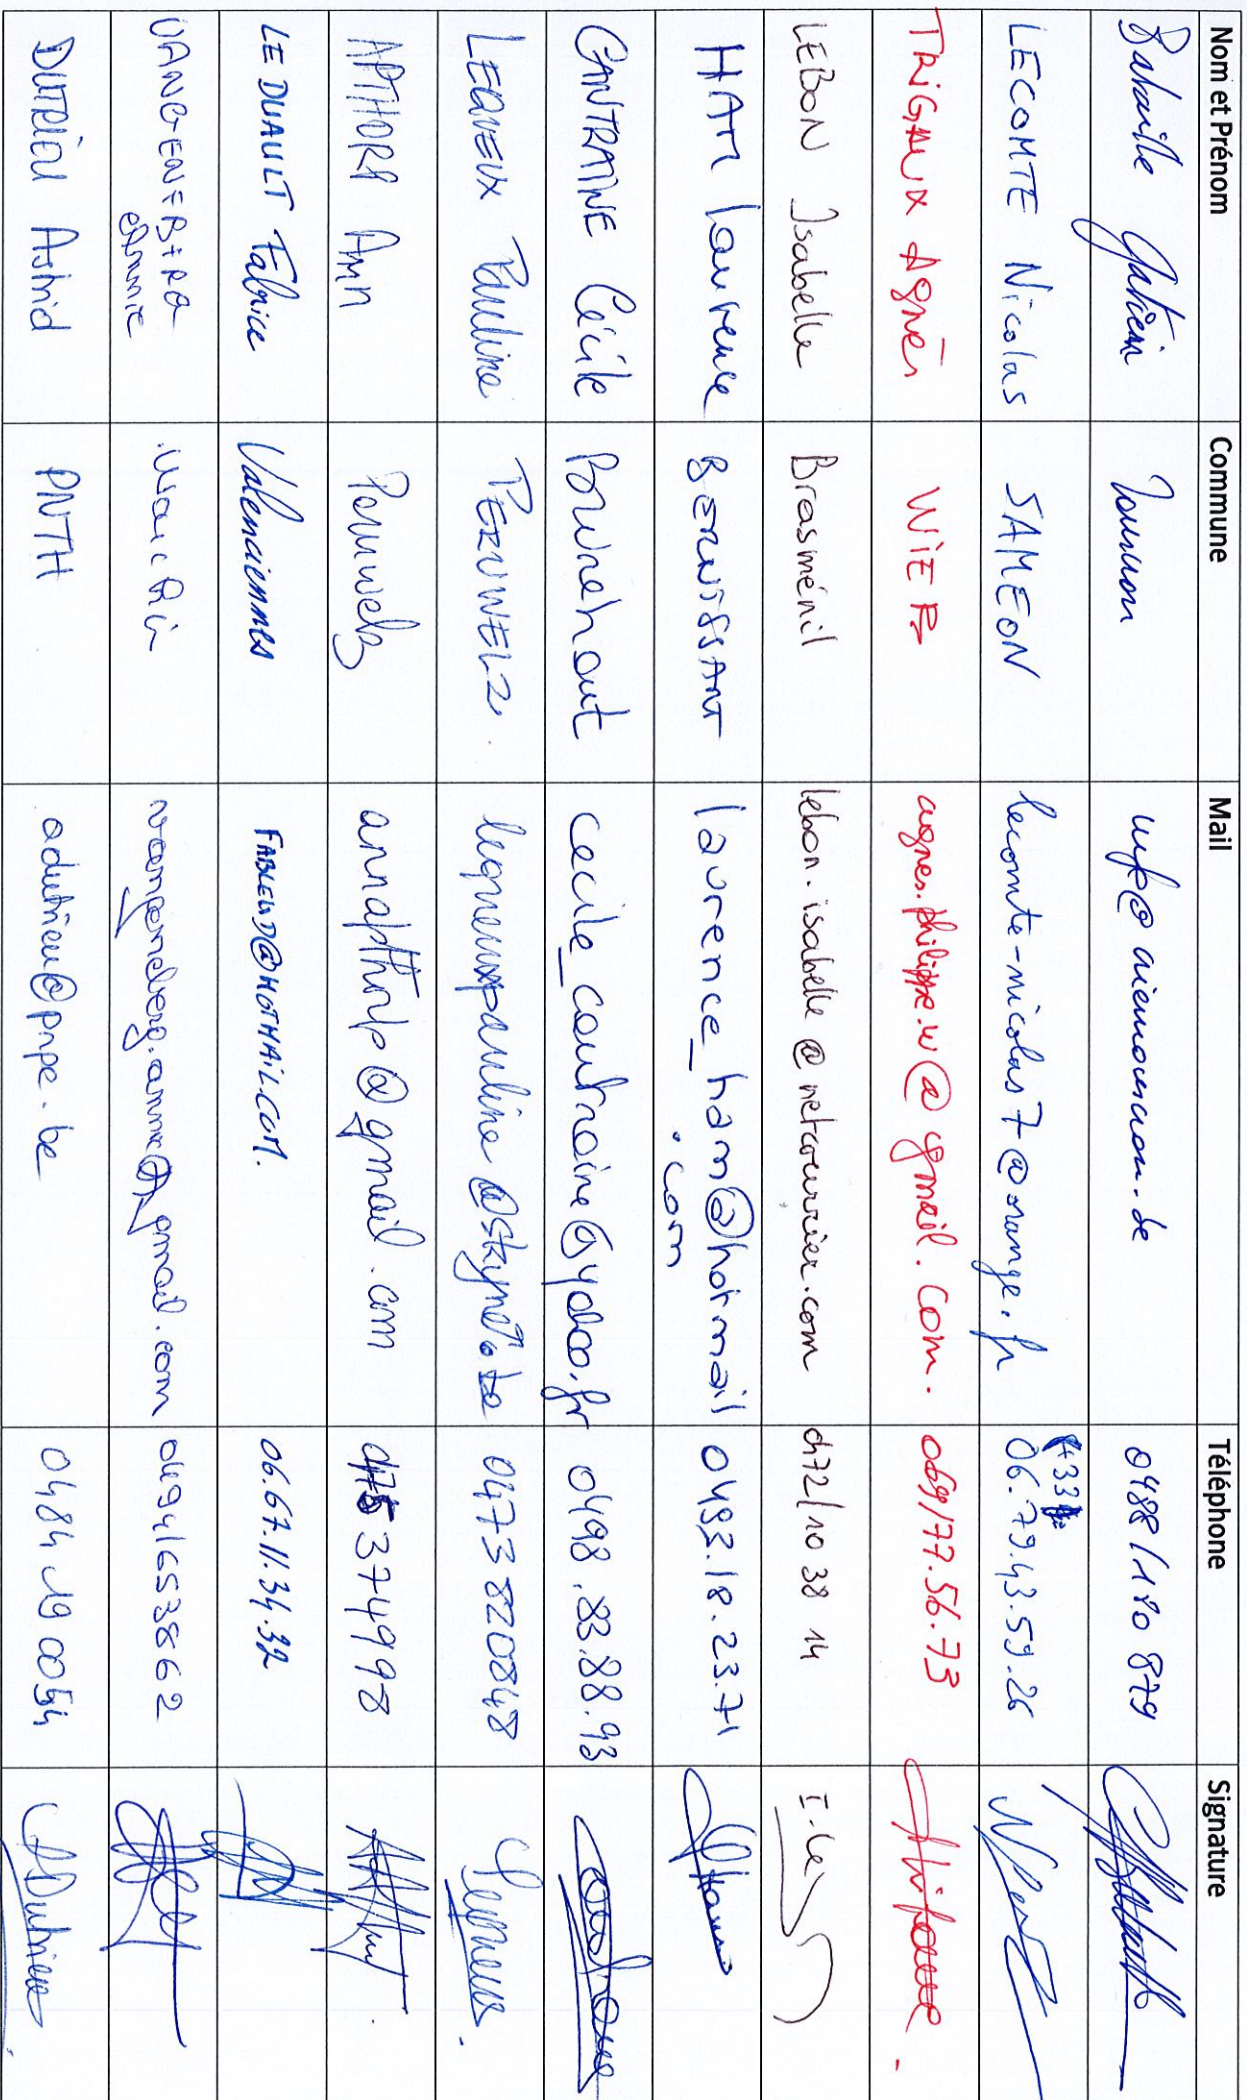 Nom et Prénom Commune Mail Téléphone Signature
Bataille Gatien Tournai 0488/180 879
LECOMTE Nicolas SAMEON lecomte-nicolas7@orange.fr (+33) 06.79.43.59.26
TRIGAUX Agnès WIERS agnes.philippe.w@gmail.com. 069/77.56.73
LEBON Isabelle Brasménil lebon.isabelle@netcourrier.com 0472/10 38 14
HAM Laurence BERNISSART laurence_ham@hotmail
.com 0493.18.23.71
CANTRAINE Cécile Brunehaut cecile_cantraine@yahoo.fr 0498.83.88.93
LEQUEUX Pauline PERUWELZ. lequeuxpauline@skynet.be 0473820848
APTHORP Ann Peruwelz annapthorp@gmail.com 0475374998
LE DUAULT Fabrice Valenciennes FABLEWD@HOTMAIL.COM. 06.67.11.34.32
Annie @gmail.com 0494/653862
DUTRIEU Astrid PNTH adutrieu@pnpe.be 0484 19 00 54